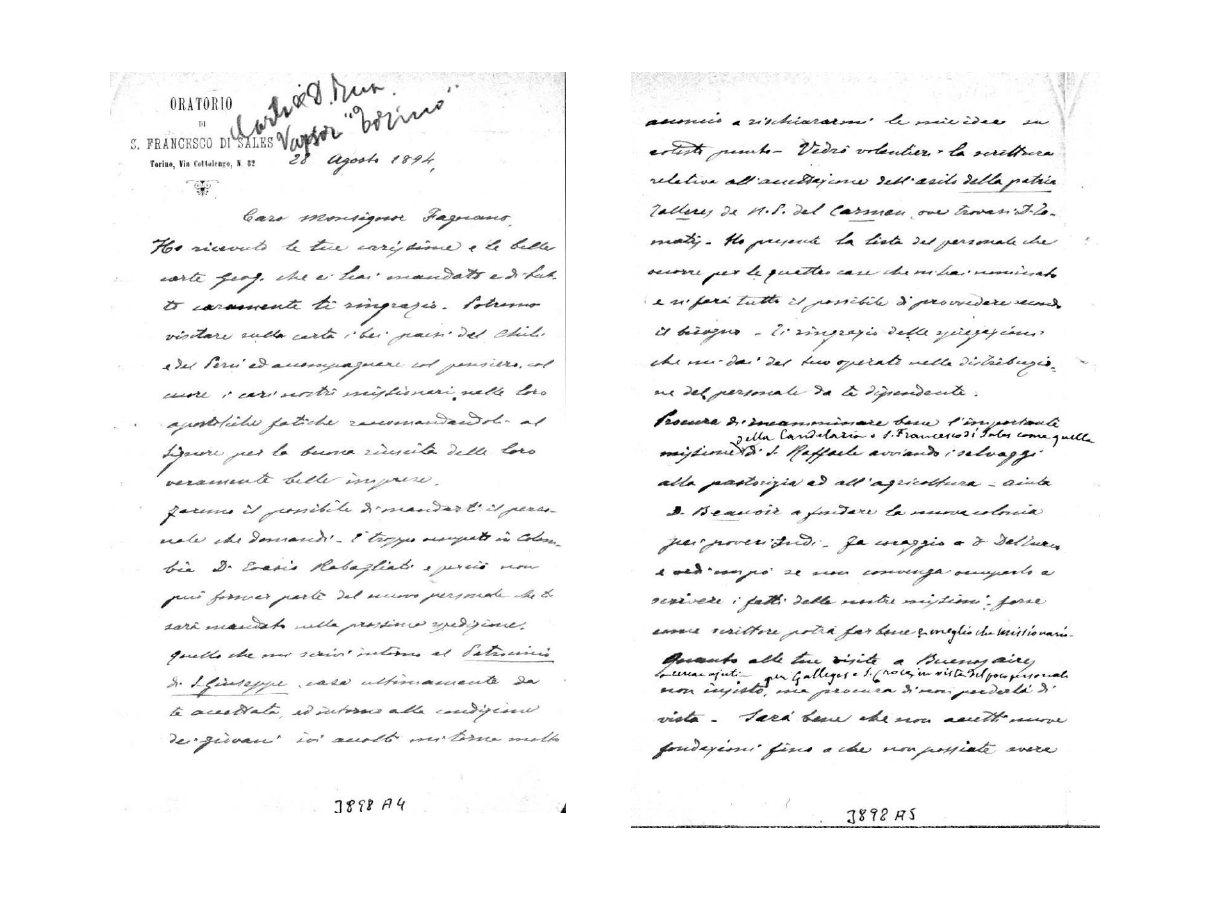 ORATORIO
DI
S. FRANCESCO DI SALES
Torino, Via Cottolengo, N. 32
Carta di D. Rua.
Vapor "Torino"
28 Agosto 1894,
Caro Monsignor Fagnano,
Ho ricevuto le tue carissime e le belle
carte geog. che ci hai mandato e di tut
to caramente ti ringrazio. Potremo
visitare sulla carta i bei paesi del Chili
e del Perù ed accompagnare col pensiero, col
cuore i cari nostri missionari nelle loro
apostoliche fatiche raccomandandoli al
Signore per la buona riuscita delle loro
veramente belle imprese.
Faremo il possibile di mandarti il perso-
nale che domandi - È troppo occupato in Colom-
bia D. Evasio Rabagliati e perciò non
può formar parte del nuovo personale che ti
sarà mandato nella prossima spedizione.
Quello che mi scrivi intorno al Patrocinio
di S. Giuseppe, casa ultimamente da
te accettata, ed intorno alla condizione
dei giovani ivi accolti mi torna molto
J898 A4
acconcio a rischiararmi le mie idee su
cotesto punto - Vedrò volentieri la scrittura
relativa all'accettazione dell'asilo della patria
Talleres de N. S. del Carmen, ove trovasi D. To-
matis - Ho presente la lista del personale che
occorre per le quattro case che mi hai nominato
e si farà tutto il possibile di provvedere secondo
il bisogno - Ti ringrazio delle spiegazioni
che mi dai del tuo operato nella distribuzio-
ne del personale da te dipendente.
Procura di incamminare bene l'importante
della Candelaria e S. Francesco di Sales come quella
missione di S. Raffaele avviando i selvaggi
alla pastorizia ed all'agricoltura - aiuta
D. Beauvoir a fondare la nuova colonia
pei poveri Indi - Fa coraggio a D.
e vedi un po' se non convenga occuparlo a
scrivere i fatti delle nostre missioni, forse
come scrittore potrà far bene e meglio che missionario.
Quanto alle tue visite a Buenos aires
per Gallegos e S. Croce, in vista del poco personale
non insisto, ma procura di non perderli di
vista - Sarà bene che non accetti nuove
fondazioni fino a che non possiate avere
J898 A5